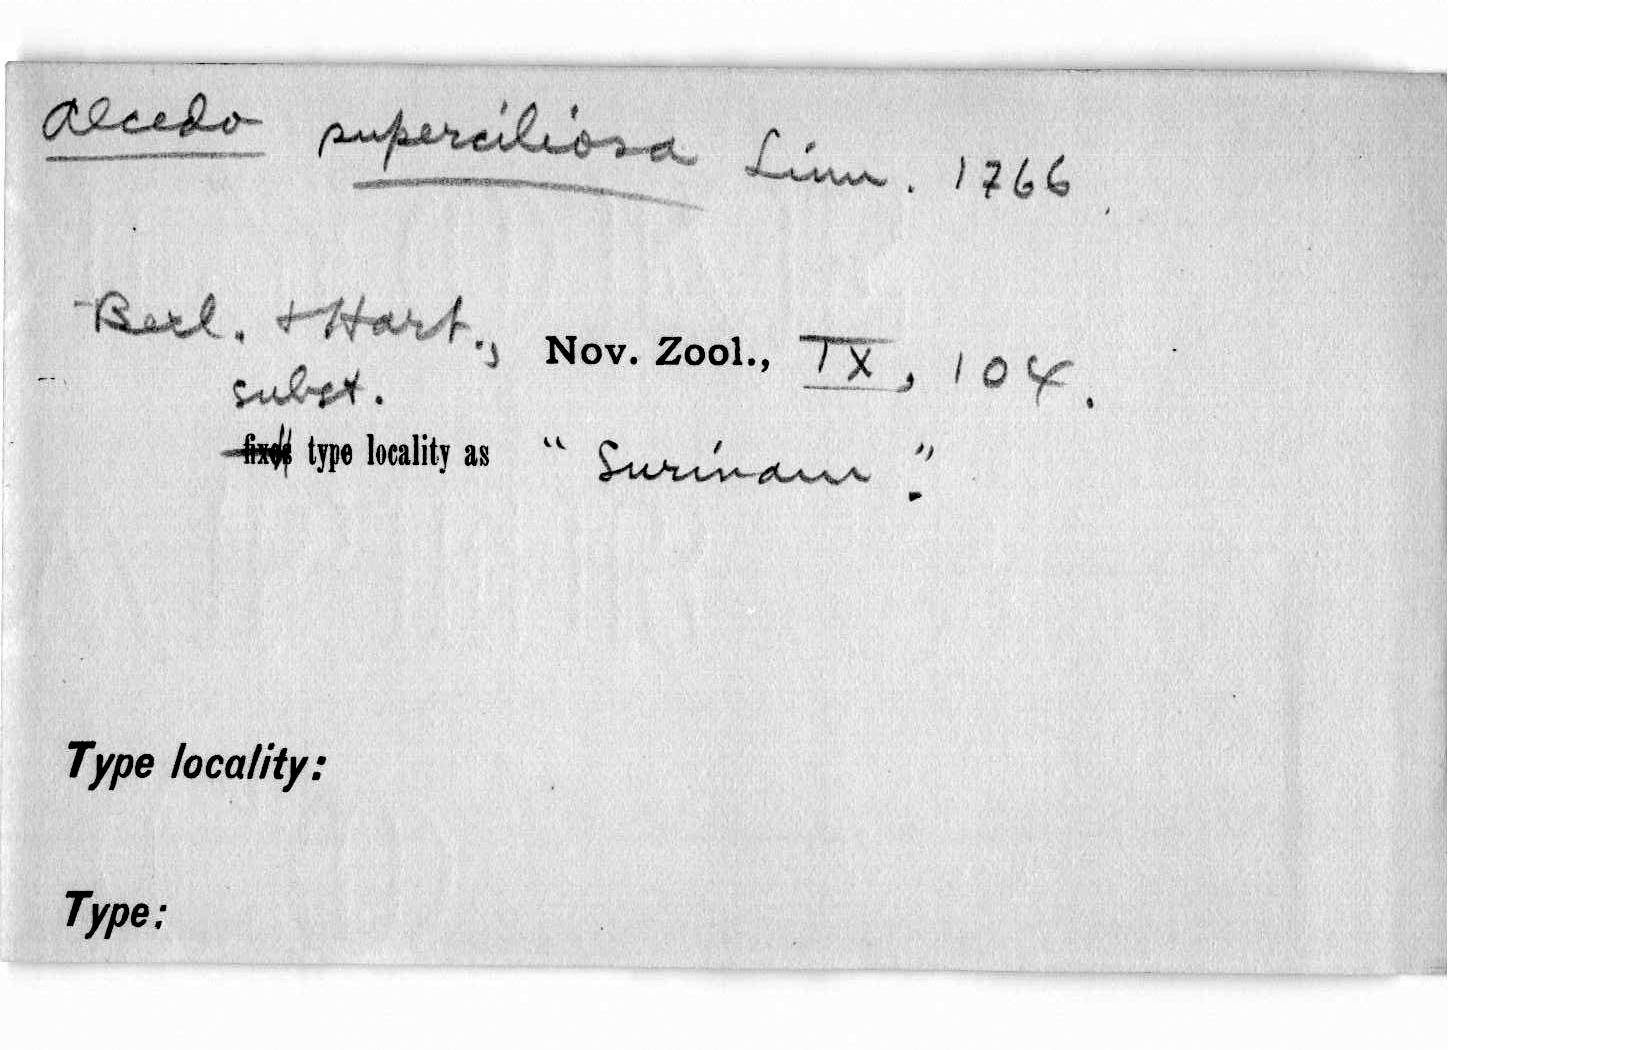 Alcedo superciliosa Linn. 1766.
Berl. + Hart., Nov. Zool., IX, 104.
subst.
fixes type locality as "Surinam".
Type locality:
Type: